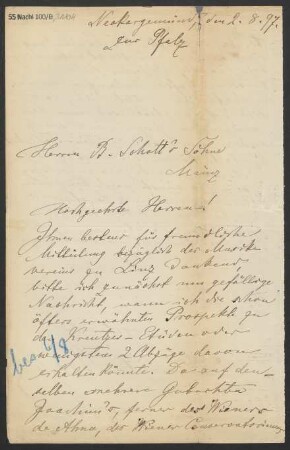 55 Nachl 100/B,
Neckargemünd, den 2. 8. 97.
Zur Pfalz
Herren B. Schott's Söhne
Mainz
Hochgeehrte Herren!
Ihnen bestens für freundliche
Mitteilung bezüglich des Musik-
vereins zu Linz dankend,
bitte ich zunächst um gefällige
Nachricht, wann ich die schon
öfters erwähnten Prospekte zu
den Kreutzer-Etüden oder
wenigstens 2 Abzüge davon
erhalten könnte. Da auf den-
selben mehrere Gutachten
Joachim's, ferner des Wieners
de Ahna, des Wiener Conservatoriums